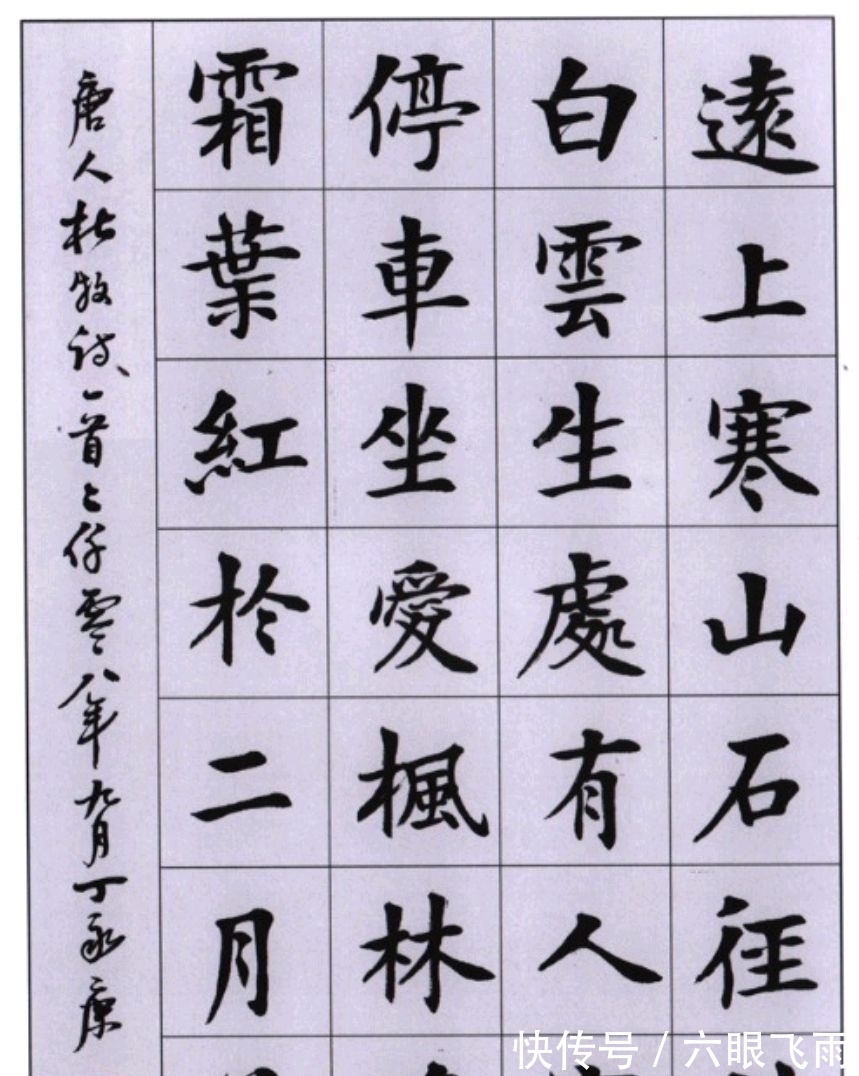 遠上寒山石徑
白雲生處有人
停車坐愛楓林
霜葉紅於二月
唐人杜牧詩一首二仟零八年九月丁永康
快传号 / 六眼飞雨